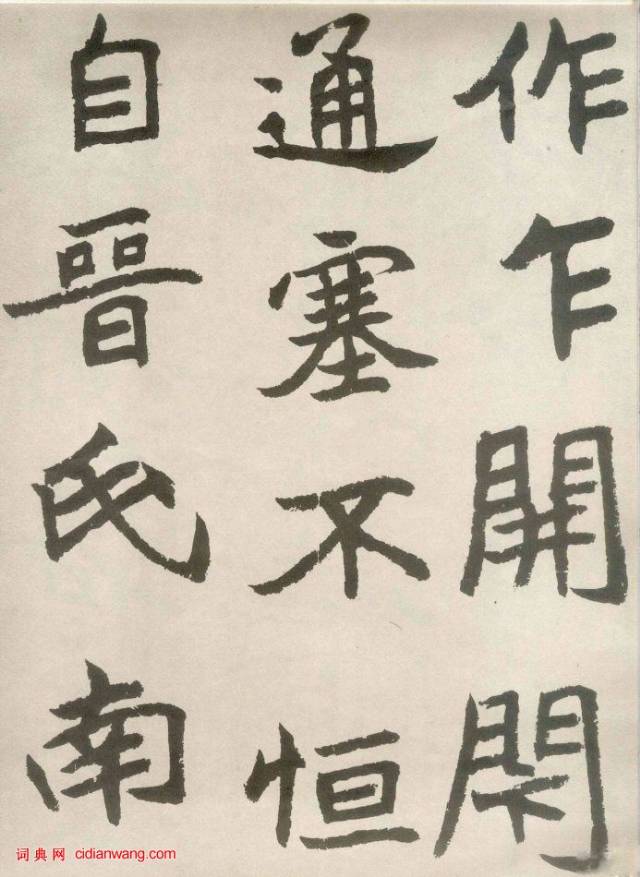 作乍開閇
通塞不恒
自晉氏南
词典网 cidianwang.com